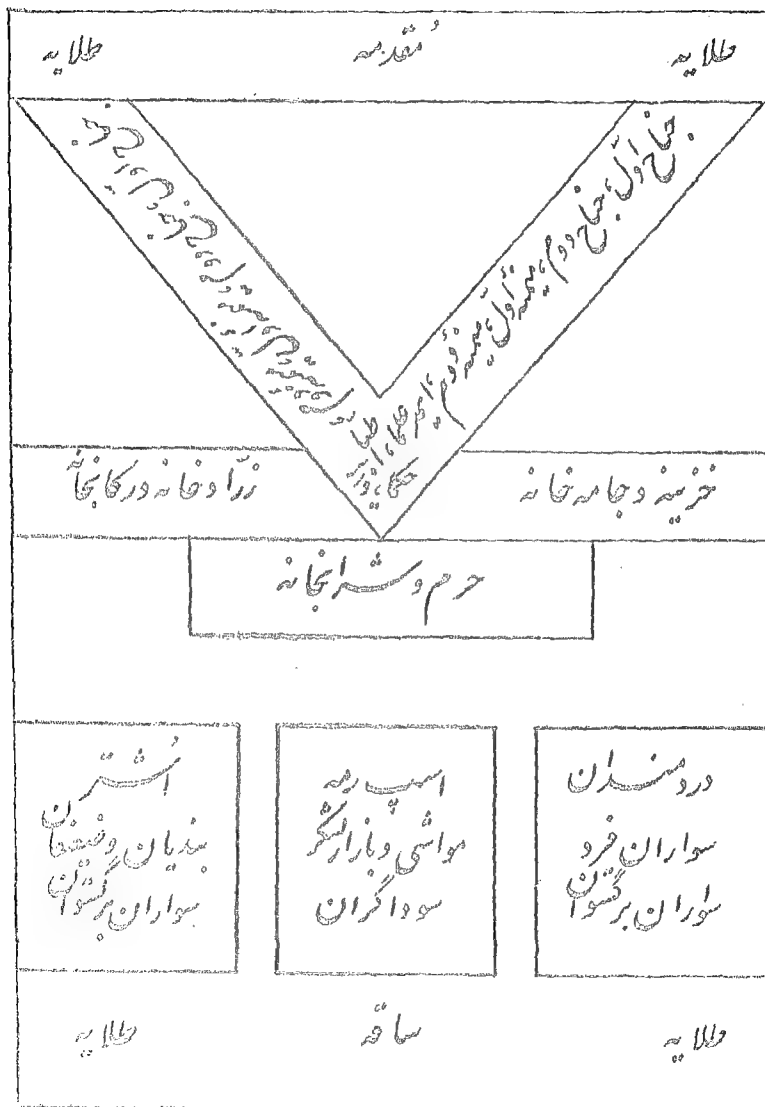 طلایه
مُقدمه
طلایه
جناح اوّل، جناح دوم، میمنه اوّل، میمنه دوم، امیر علما، امیر
حکما، وزیر
خزینه و جامه خانه
زرّاد خانه و رکابخانه
حرم و شرابخانه
دردمندان
سواران فرد
سواران برگستوان
اسپ رمه
مواشی و بازار لشکر
سوداگران
اُشتر
بندیان وضعیفان
سواران برگستوان
طلایه
ساقه
طلایه